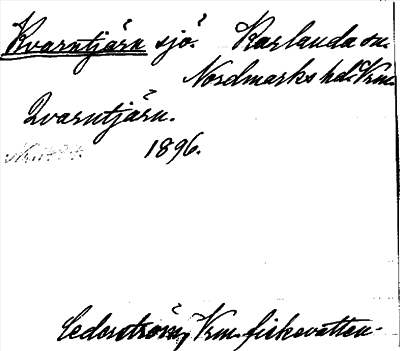 Kvarntjärn sjö. Karlanda sn.
Nordmarks hd. Vrm.
Qvarntjärn.
1896.
Cederström, Vrm. fiskevatten.